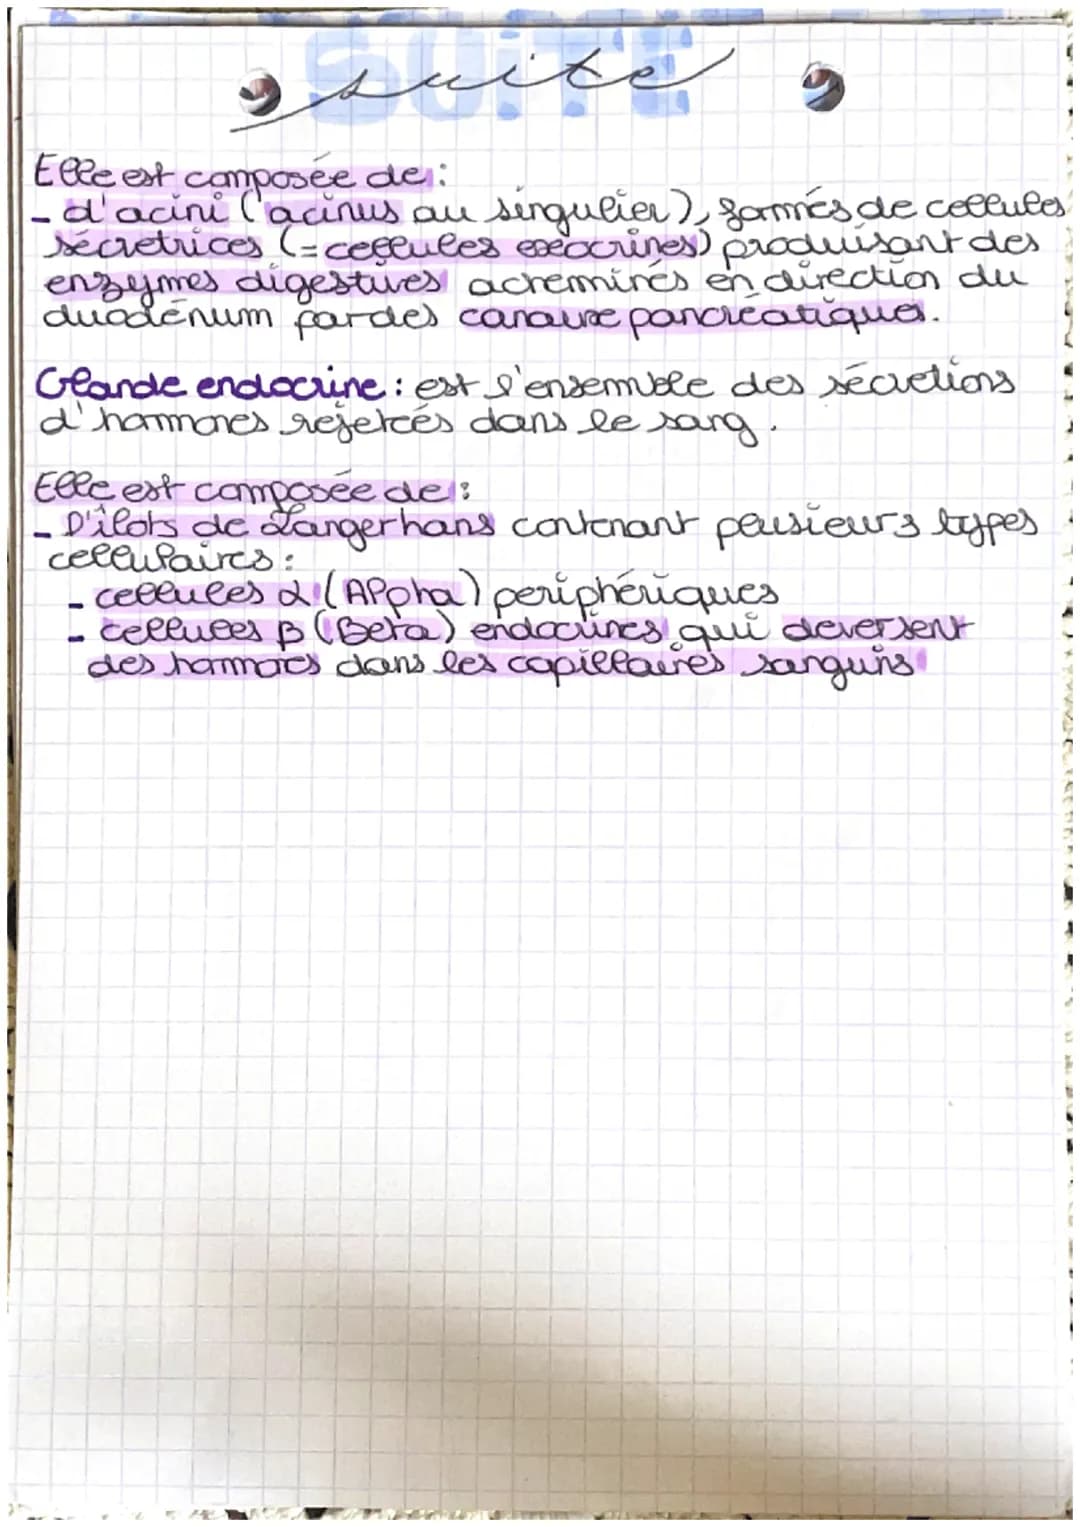 SUITE
suite
Elle est composée de :
- d'acini (acinus au singulier), formés de cellules
sécretrices (= cellules exocrines) produisant des
enzymes digestives acheminés en direction du
duodénum par des canaux pancréatiques.
Glande endocrine : est l'ensemble des sécrétions
d'hormones rejetées dans le sang.
Elle est composée de :
- D'îlots de Langerhans contenant plusieurs types
cellulaires :
- cellules α (Alpha) periphériques
- cellules β (Beta) endocrines qui deversent
des hormones dans les capillaires sanguins